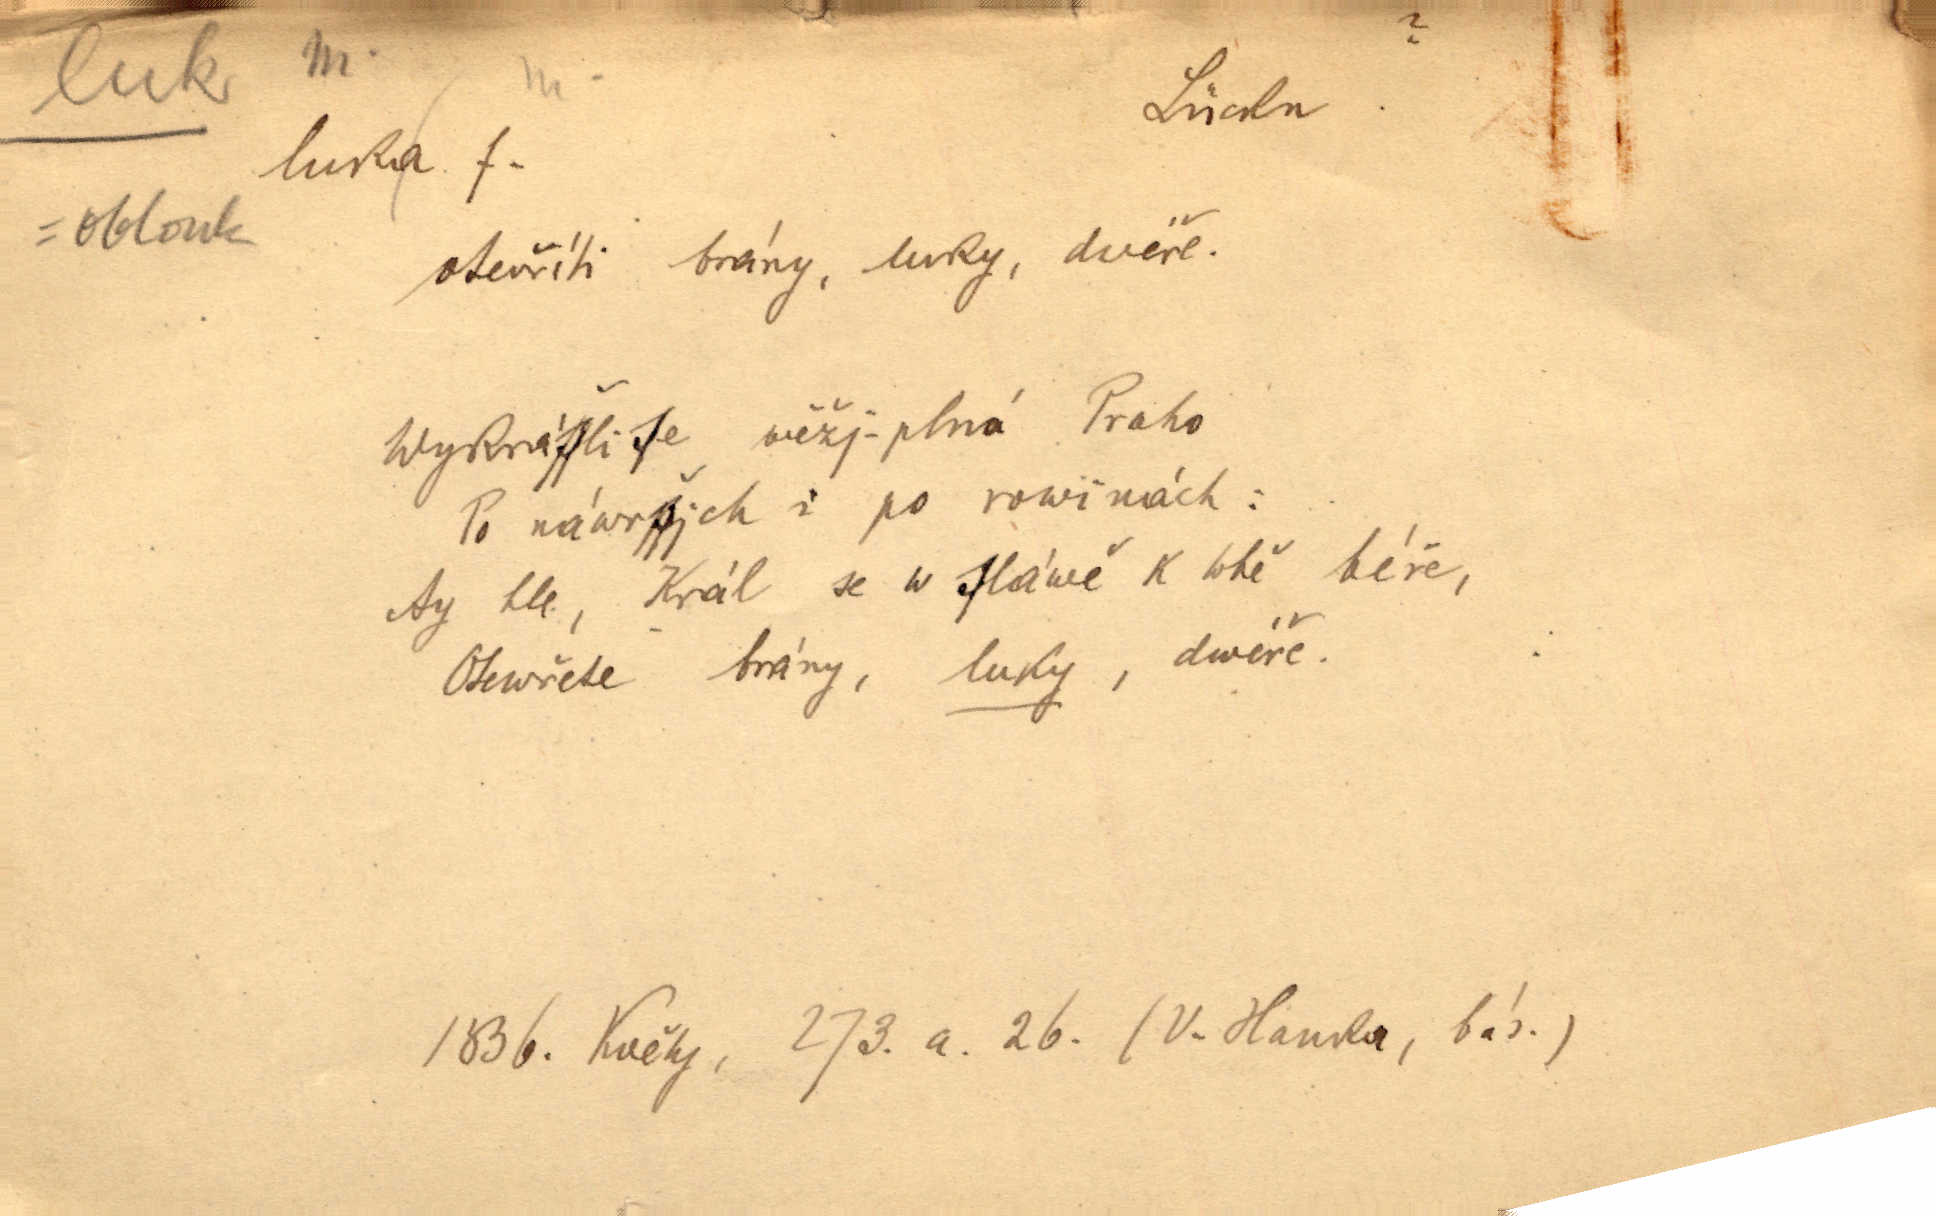 luk m. m. ?
Lücken
luka f.
= oblouk
otevříti brány, luky, dvéře.
Wykráſſli ſe wěžj-plná Praho
Po náwrſſjch i po rowinách:
Ay hle, Král se w ſláwě k tobě béře,
Otewřete brány, luky, dwéře.
1836. Květy, 273. a. 26. (V. Hanka, bás.)